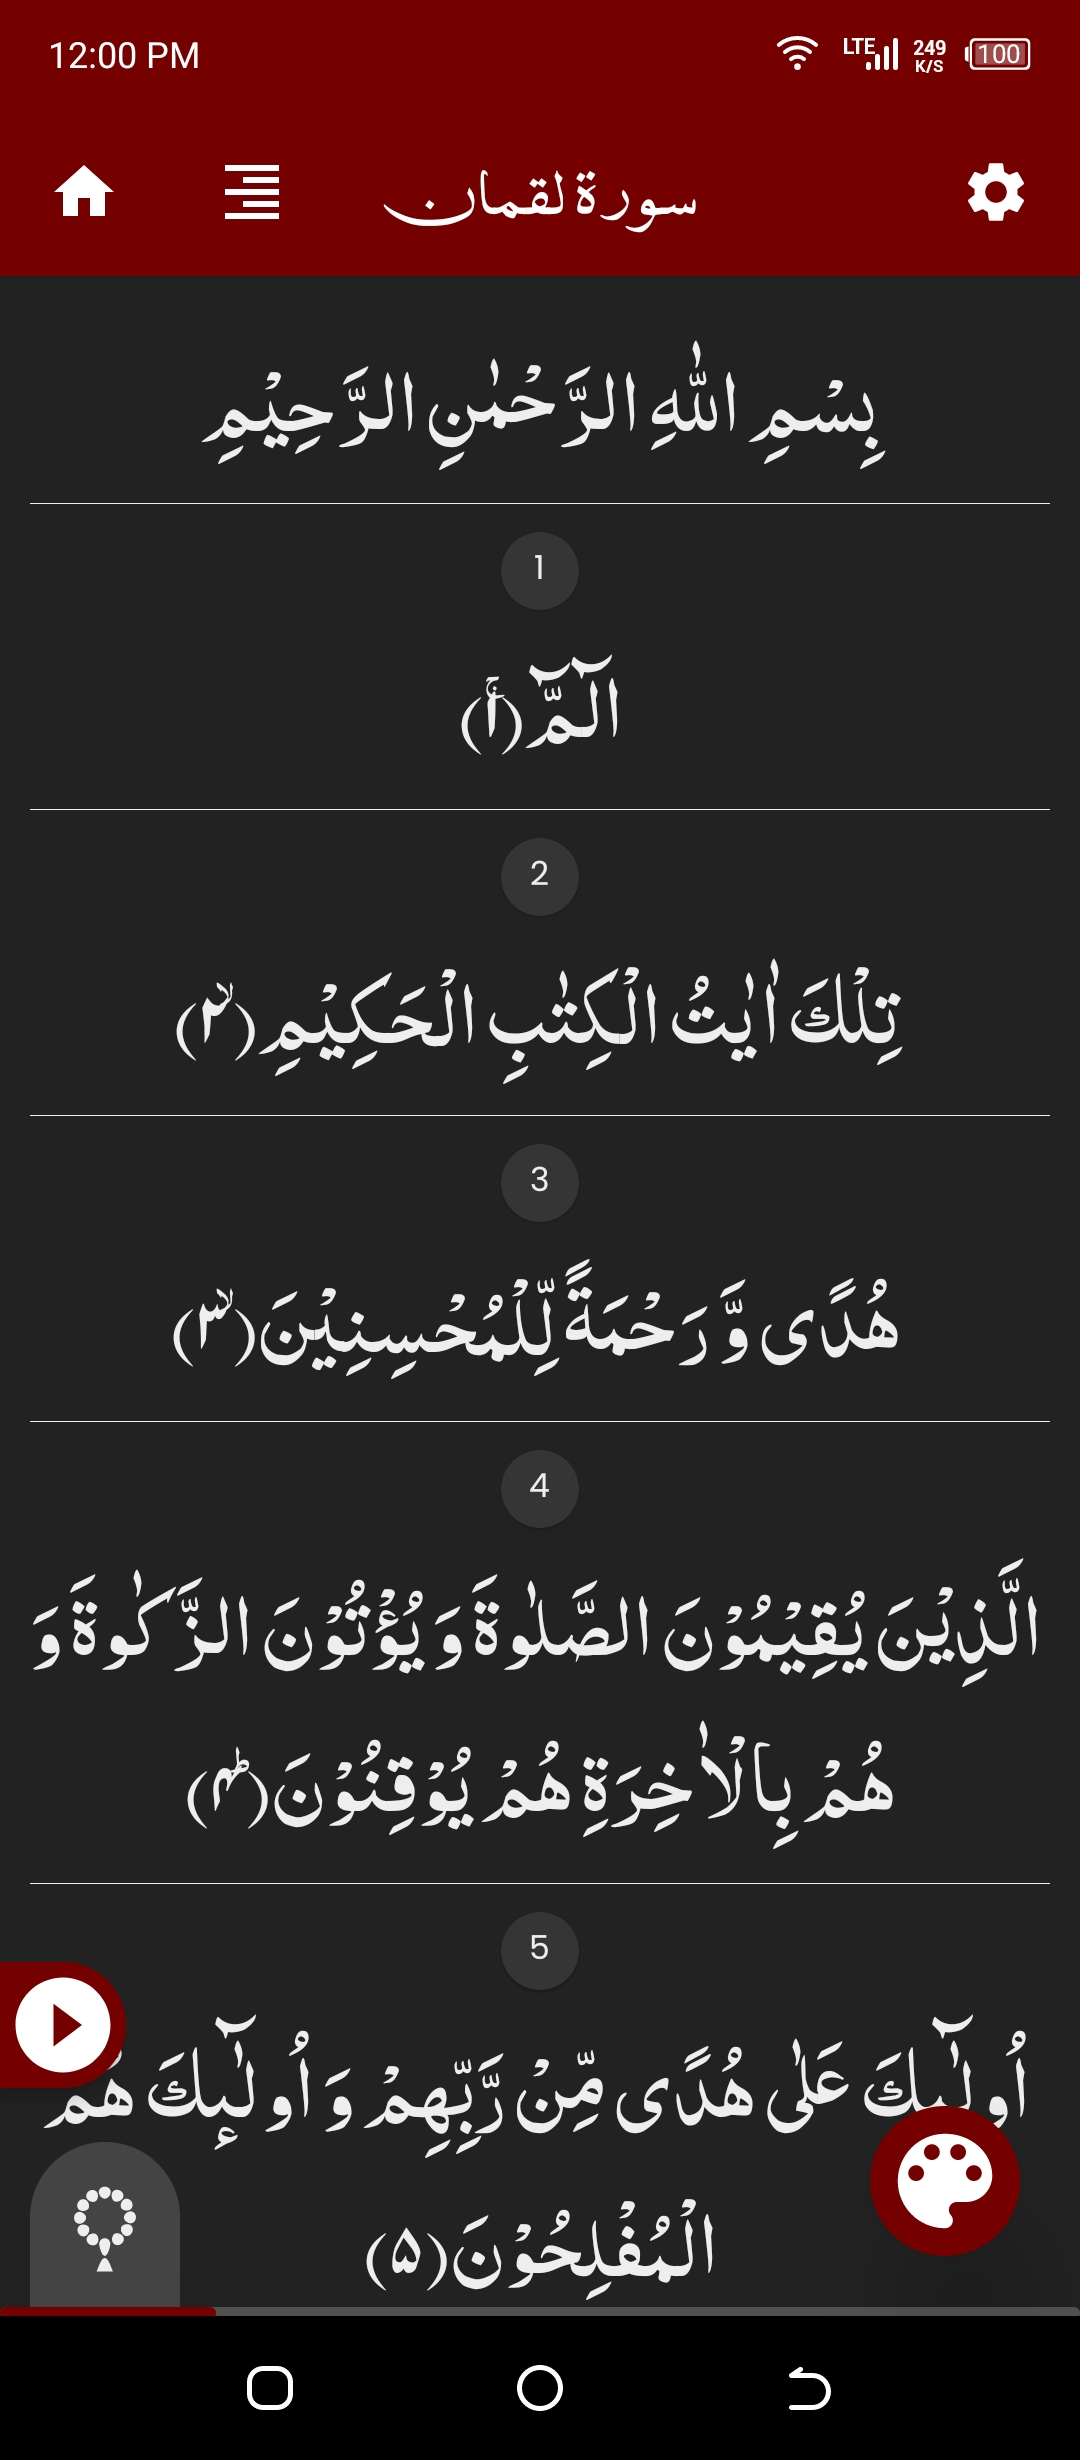 12:00 PM
LTE 249 K/S 100
سورة لقمان
بِسْمِ اللّٰهِ الرَّحْمٰنِ الرَّحِیْمِ
1
الٓمّٓۚ(۱)
2
تِلْكَ اٰیٰتُ الْكِتٰبِ الْحَكِیْمِۙ(۲)
3
هُدًى وَّ رَحْمَةً لِّلْمُحْسِنِیْنَۙ(۳)
4
الَّذِیْنَ یُقِیْمُوْنَ الصَّلٰوةَ وَ یُؤْتُوْنَ الزَّكٰوةَ وَ
هُمْ بِالْاٰخِرَةِ هُمْ یُوْقِنُوْنَؕ(۴)
5
اُولٰٓىٕكَ عَلٰى هُدًى مِّنْ رَّبِّهِمْ وَ اُولٰٓىٕكَ هُمُ
الْمُفْلِحُوْنَ(۵)